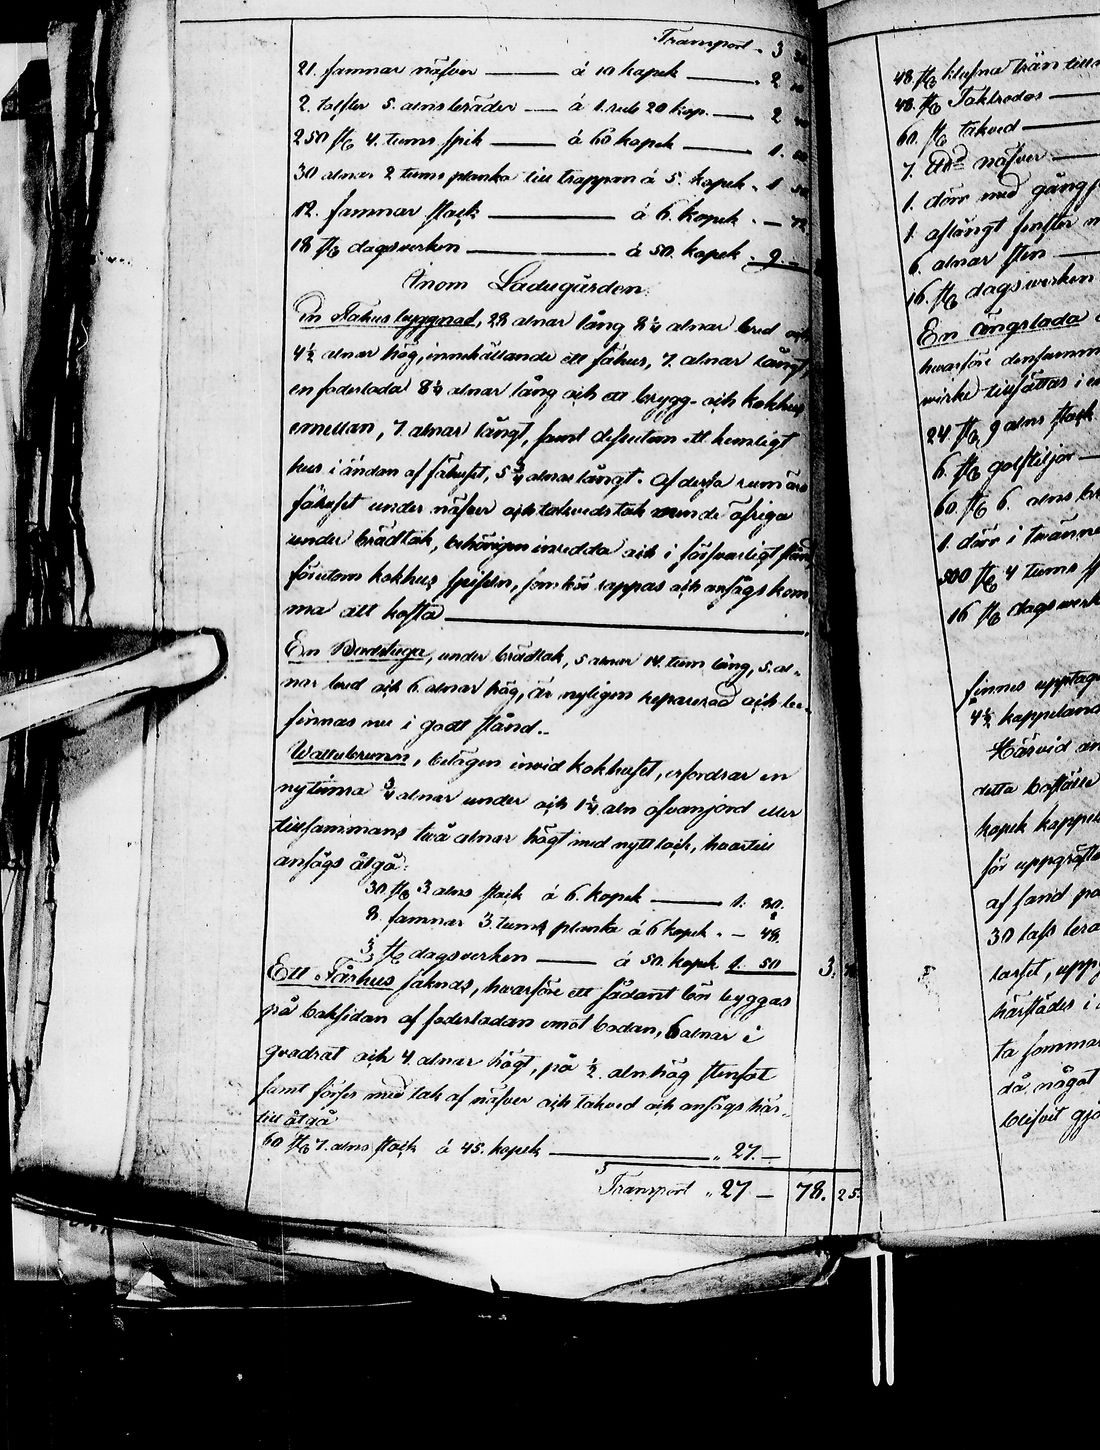 Transport - 3
21. famnar näfver — á 10 kopek — 2
2. tolfter 5. alns bräder — á 1. rub 20 kop. — 2
250 st 4. tums spik — á 60 kopek — 1.
30 alnar 2 tums planka till trappan á 5. kopek - 1 50
12. famnar stock — á 6. kopek - — 72
18 st dagsverken — á 50. kopek - 9. -
Inom Ladugården.
En Fähus byggnad, 28 alnar lång 8¼ alnar bred och
4½ alnar hög, innehållande ett fähus, 7. alnar långt,
en foderlada 8¼ alnar lång och ett brygg- och kokhus
emellan, 7. alnar långt, samt dessutom ett hemligt
hus i ändan af fähuset, 5¾ alnar långt. Af dessa rum äro
fähuset under näfver och takvedstak men de öfriga
under brädtak, behörigen inredda och i försvarligt stånd
förutom kokhus spiseln, som bör lappas och ansågs kom
ma att kosta —
En Bodstuga, under brädtak, 5 alnar 14. tum lång, 5. al-
nar bred och 6. alnar hög, är nyligen reparerad och be-
finnas nu i godt stånd.-
Wattubrunn, belägen invid kokhuset, erfordrar en
ny timra ¾ alnar under och 1¼ aln ofvanjord eller
tillsammans två alnar högt med nytt lock, hvartill
ansågs åtgå:
30 st 3 alns stock á 6. kopek — 1. 80.
8. famnar 3. tums planka á 6 kopek. - — 48.
3. st dagsverken — á 50. kopek 1. 50 3.
Ett Fårhus saknas, hvarföre ett sådant bör byggas
på baksidan af foderladan emot bodan, 6 alnar i
qvadrat och 4. alnar högt, på ½. aln hög stenfot
samt förses med tak af näfver och takved och ansågs här-
till åtgå
60 st 7. alns stock á 45. kopek — „ 27. —
Transport „ 27 — 78. 25.
48. st klufna trän till
48. st Taktrodor —
60. st takved —
7. näfver —
1. dörr med gång
1. aflångt fenster
6. alnar sten —
16. st dagsverken
En ängslada
hvarföre densamm
wirke tillsättas i
24. st 9 alns stock
6. st golftiljor —
60. st 6. alns
1. dörr i
500 st 4 tums
16 st dagsverk
finnes upptaga
4½ kappeland
Härvid
detta boställe
kopek
för uppgräfta
af sand
30 lass lera
härstädes i
ta sommar
då något
blifvit